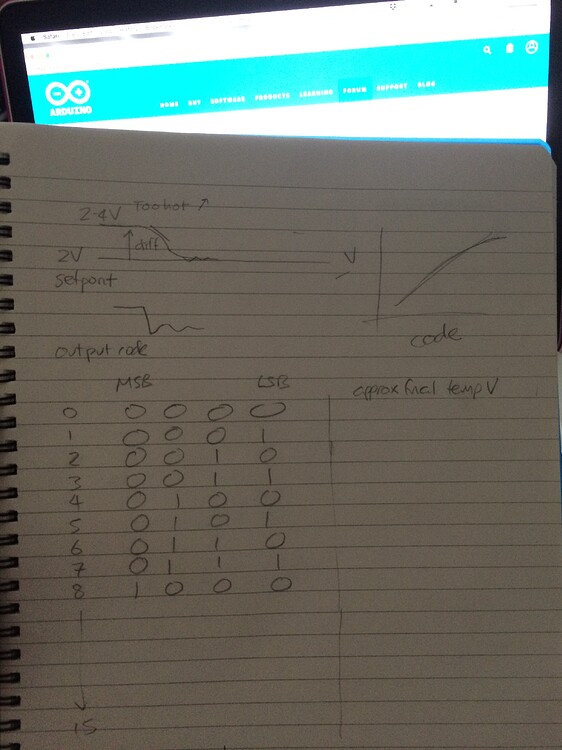 Safari
ARDUINO
HOME BUY SOFTWARE PRODUCTS LEARNING FORUM SUPPORT BLOG
2-4V Too hot ↗
diff
2V V
setpont
code
output code
MSB LSB approx final temp V
0 0 0 0 0
1 0 0 0 1
2 0 0 1 0
3 0 0 1 1
4 0 1 0 0
5 0 1 0 1
6 0 1 1 0
7 0 1 1 1
8 1 0 0 0
15